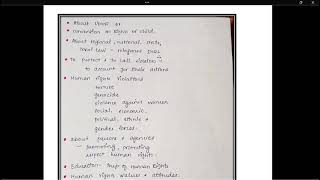 About UDHR or
Convention on Rights of child.
About regional, national, state,
local law - relevant
To protect & to call violators
to account for their actions
Human rights violations
torture
genocide
violence against women
social, economic,
political, ethnic &
gender
about & agencies
- promoting, protecting
respect human rights.
Education - of Human Rights
Human rights values & attitudes.